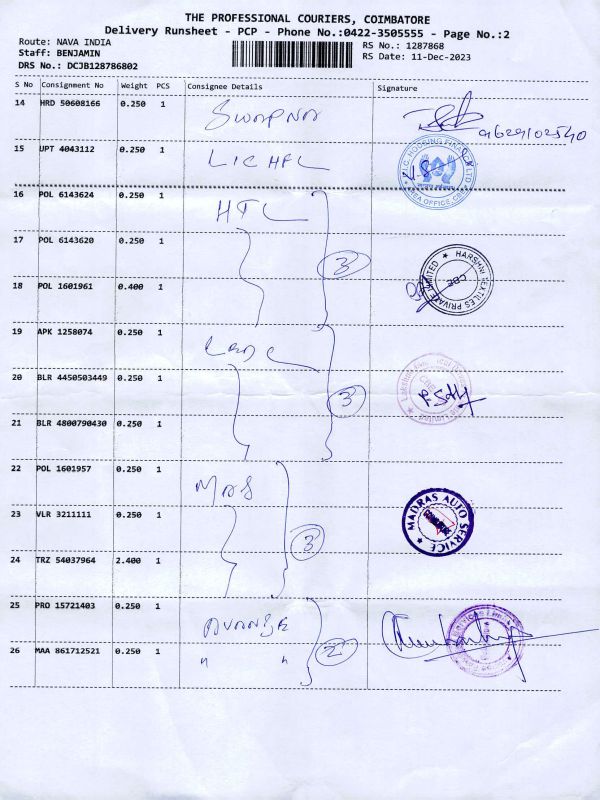 THE PROFESSIONAL COURIERS, COIMBATORE
Delivery Runsheet - PCP - Phone No.:0422-3505555 - Page No.:2
Route: NAVA INDIA
Staff: BENJAMIN
DRS No.: DCJB128786802
RS No.: 1287868
RS Date: 11-Dec-2023
S No Consignment No Weight PCS Consignee Details Signature
14 HRD 50608166 0.250 1 SWAPNA 9629102540
15 UPT 4043112 0.250 1 LICHFL
16 POL 6143624 0.250 1 HTL
17 POL 6143620 0.250 1 3
18 POL 1601961 0.400 1
HARSHNI TEXTILES PRIVATE LIMITED
CBE
19 APK 1258074 0.250 1
20 BLR 4450503449 0.250 1 3
21 BLR 4800790430 0.250 1
22 POL 1601957 0.250 1 MAS
23 VLR 3211111 0.250 1 3
MADRAS AUTO SERVICE
24 TRZ 54037964 2.400 1
25 PRO 15721403 0.250 1
26 MAA 861712521 0.250 1 " " 2